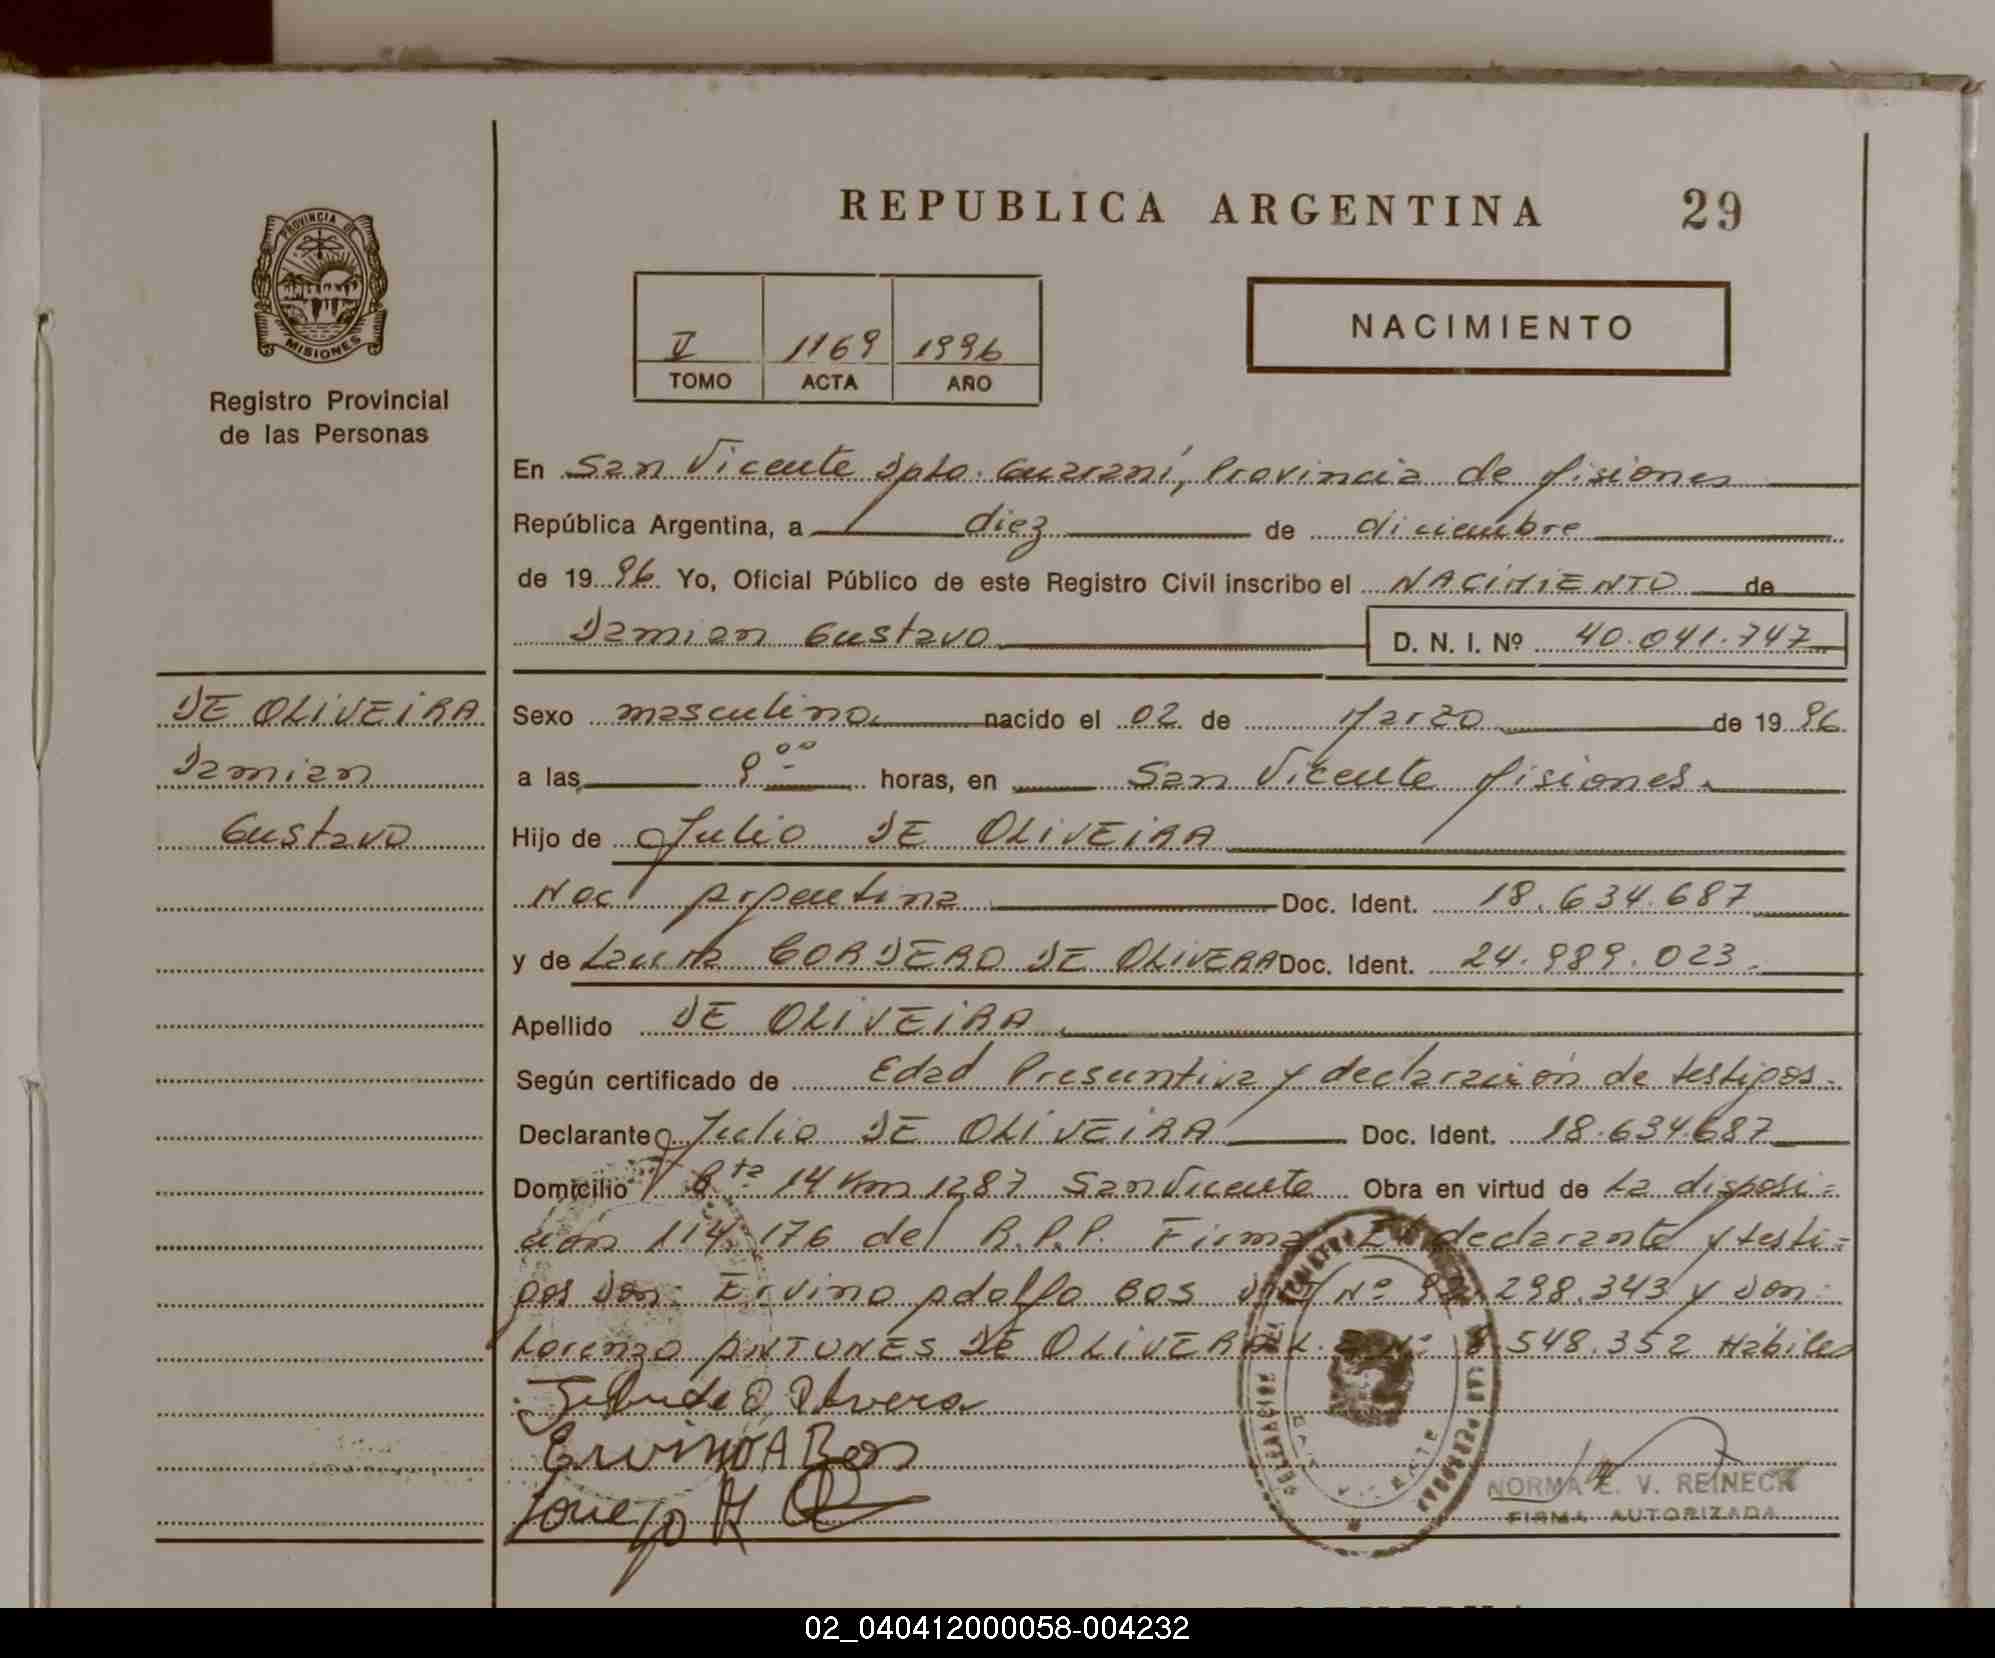 REPUBLICA ARGENTINA 29
PROVINCIA DE
MISIONES
Registro Provincial
de las Personas
V 1169 1996
TOMO ACTA AÑO
NACIMIENTO
En San Vicente Dpto. Guaraní, Provincia de Misiones
República Argentina, a diez de diciembre
de 1996 Yo, Oficial Público de este Registro Civil inscribo el NACIMIENTO de
Damian Gustavo D. N. I. Nº 40.041.747
DE OLIVEIRA
Damian
Gustavo
Sexo masculino nacido el 02 de Marzo de 1996
a las 9 00 horas, en San Vicente Misiones.
Hijo de Julio DE OLIVEIRA
Nac Argentina Doc. Ident. 18.634.687
y de Laura CORDERO DE OLIVERA Doc. Ident. 24.989.023.
Apellido DE OLIVEIRA
Según certificado de Edad Presuntiva y declaración de testigos.
Declarante Julio DE OLIVEIRA Doc. Ident. 18.634.687
Domicilio Rta 14 Km 1287 San Vicente Obra en virtud de La disposi=
ción 114/176 del R.P.P. Firma El declarante y testi=
gos Don: Ervino Adolfo BOS Nº 92.298.343 y Don:
Lorenzo ANTUNES DE OLIVERA L.E. Nº 8.548.352 Hábiles
Ervino A Bos
NORMA E. V. REINECK
FIRMA AUTORIZADA
02_040412000058-004232